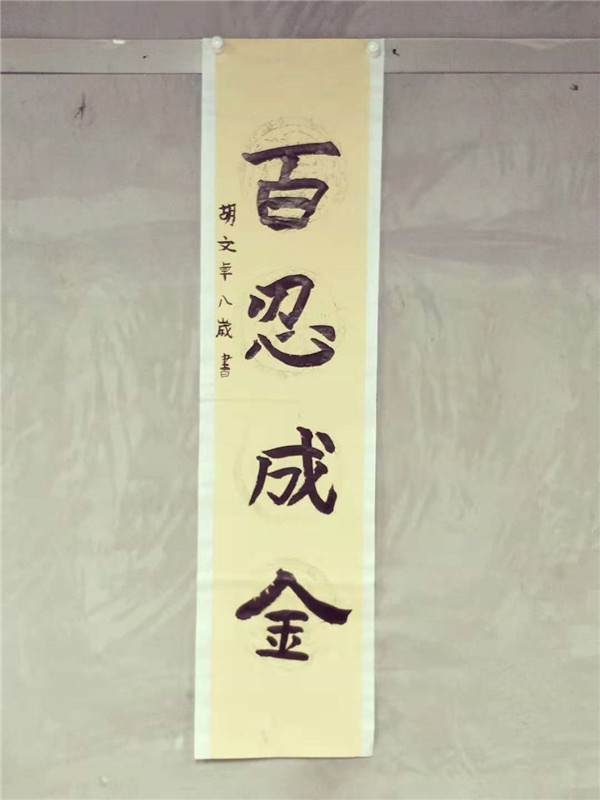 百忍成金
胡文卓八歲書